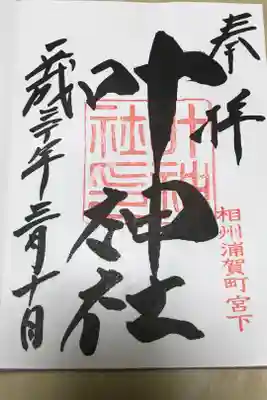 奉拝
相州浦賀町宮下
叶神社
叶神社印
平成三十年三月十日